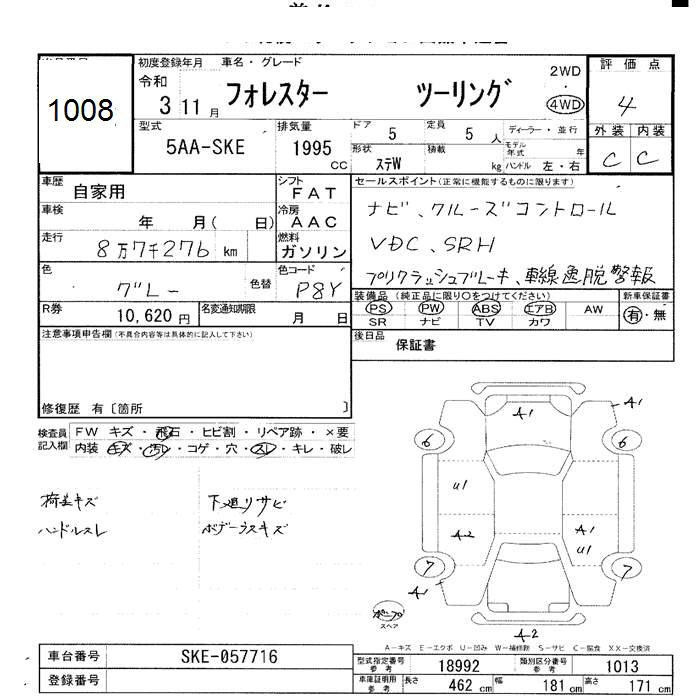 1008
初度登録年月 車名・グレード
令和
3 11月
フォレスター ツーリング
2WD
4WD
評価点
4
外装 内装
C C
型式
5AA-SKE
排気量
1995 CC
ドア 5
定員 5 人
ディーラー・並行
形状 ステW
積載 kg
モデル年式 年
ハンドル 左・右
車歴 自家用
シフト FAT
車検 年 月( 日)
冷房 AAC
走行 8万7千276 km
燃料 ガソリン
色 グレー
色替
色コード P8Y
R券 10,620円
名変通知期限 月 日
セールスポイント(正常に機能するものに限ります)
ナビ、クルーズコントロール
VDC、SRH
プリクラッシュブレーキ、車線逸脱警報
装備品 (純正品に限り○をつけてください) 新車保証書
PS PW ABS エアB AW 有・無
SR ナビ TV カワ
後日品 保証書
注意事項申告欄(不具合内容等は具体的に記入して下さい)
修復歴 有〔箇所 〕
検査員記入欄
FW キズ・飛石・ヒビ割・リペア跡・×要
内装 キズ・汚レ・コゲ・穴・スレ・キレ・破レ
荷差キズ 下廻りサビ
ハンドルスレ ボデーラスキズ
A1 A1
6 6
U1
A2 A1
U1
7 7
A1
スペア
A-2
A-キズ E-エクボ U-凹み W-補修跡 S-サビ C-腐食 XX-交換済
車台番号 SKE-057716
登録番号
型式指定番号参考 18992
類別区分番号参考 1013
車庫証明用参考 長さ 462cm 幅 181cm 高さ 171cm